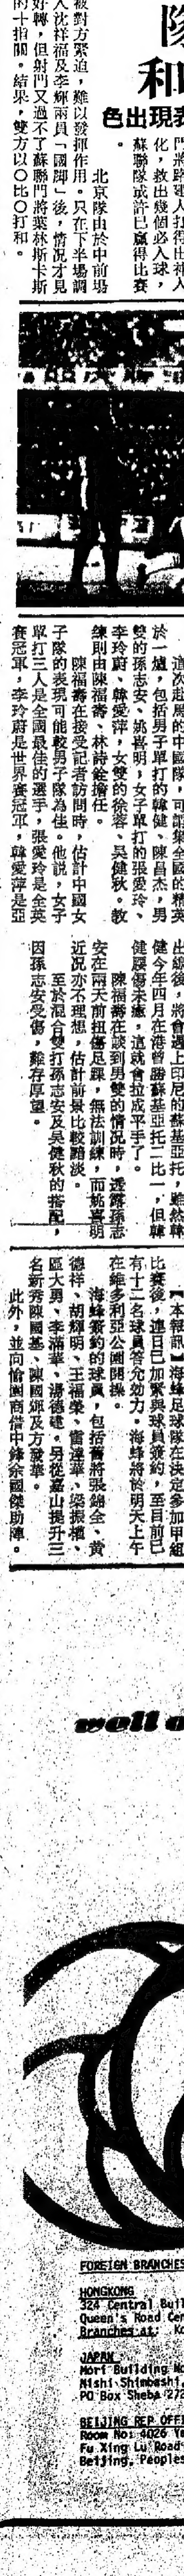 隊
和
表現出色
門將路建人扛得出神入
化，救出幾個必入球，
蘇聯隊或許已贏得比賽
。
北京隊由於中前場
被對方緊迫，難以發揮作用。只在下半場調
入沈祥福及李輝兩員「國腳」後，情況才見
好轉，但射門又過不了蘇聯門將葉林斯卡斯
的十指關。結果，雙方以〇比〇打和。
這次赴馬的中國隊，可謂集全國的精英
於一爐，包括男子單打的韓健、陳昌杰，男
雙的孫志安、姚喜明，女子單打的張愛玲、
李玲蔚、韓愛萍，女雙的徐蓉、吳健秋。教
練則由陳福壽、林詩銓擔任。
陳福壽在接受記者訪問時，估計中國女
子隊的表現可能較男子隊為佳。他說，女子
單打三人是全國最佳的選手，張愛玲是全英
賽冠軍，李玲蔚是世界賽冠軍，韓愛萍是亞
出線後，將會遇上印尼的蘇基亞托，雖然韓
健今年四月在港曾勝蘇基亞托二比一，但韓
健腰傷未癒，這就會拉成平手了。
陳福壽在談到男雙的情況時，透露孫志
安在兩天前扭傷足踝，無法訓練，而姚喜明
近況亦不理想，估計前景比較黯淡。
至於混合雙打孫志安及吳健秋的搭配，
因孫志安受傷，難存厚望。
【本報訊】海蜂足球隊在決定參加甲組
比賽後，連日已加緊與球員簽約，至目前已
有十二名球員答允効力。海蜂將於明天上午
在維多利亞公園開操。
海蜂簽約的球員，包括舊將張錦全、黃
德祥、胡輝明、王福榮、雷達華、梁振權、
區大勇、李滿華、湯德建。另從嘉山提升三
名新秀陳國基、陳國鄉及方發華。
此外，並向愉園商借中鋒余國傑助陣。
well
FOREIGN BRANCHES
HONGKONG
324 Central Buil
Queen's Road Cen
Branches at: Ko
JAPAN
Mori Building No
Nishi Shimbashi,
PO Box Sheba 272
BEIJING REP OFFI
Room No: 4026 Ya
Fu Xing Lu Road
Beijing, Peoples